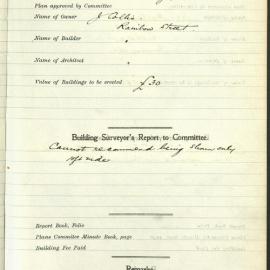 Plan approved by Committee
Name of Owner J Collie
Rainbow Street
Name of Builder "
Name of Architect "
Value of Buildings to be erected £30
Building Surveyor's Report to Committee.
Cannot recommend being shown only
wide
Report Book, Folio
Plans Committee Minute Book, page
Building Fee Paid
Remarks